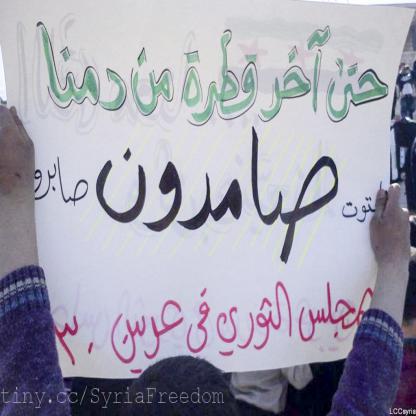 حتى آخر قطرة من دمنا
صامدون صابرو
مجلس الثوري في عربين ٣٠
tiny.cc/SyriaFreedom
LCCsyria